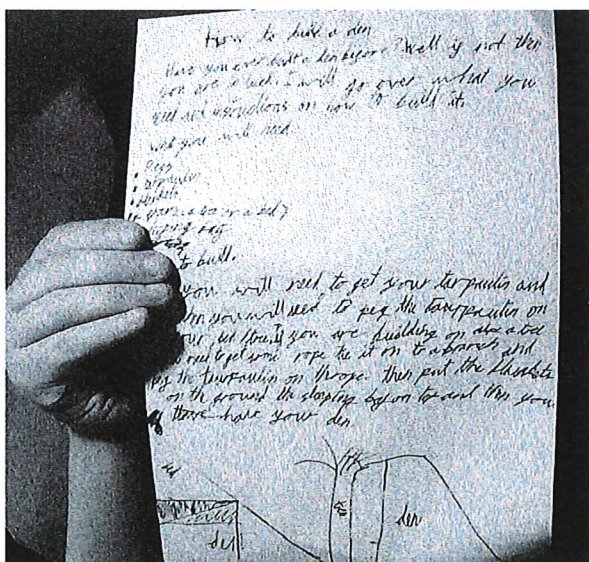 How to build a den
Have you ever built a den before? Well if not then
you are in luck. I will go over what you
need and instructions on how to build it.
what you will need.
Pegs
tarpaulin
blankets
bag
to build.
you will need to get your tarpaulin and
then you will need to peg the tarpaulin on
your bed if you are building on a tree
need to get some rope tie it on to a branch and
peg the tarpaulin on then put the blankets
on the ground the sleeping bag on top and then you
there have your den
den
den